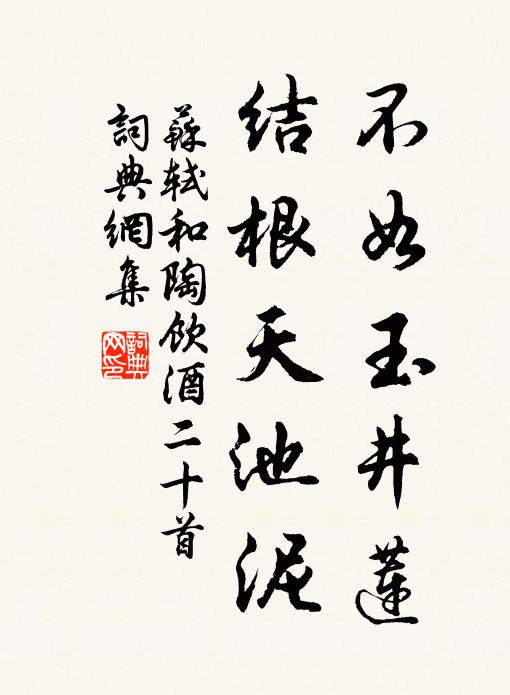 不如玉井蓮
結根天池泥
蘇軾和陶飲酒二十首
詞典網集
詞典網印